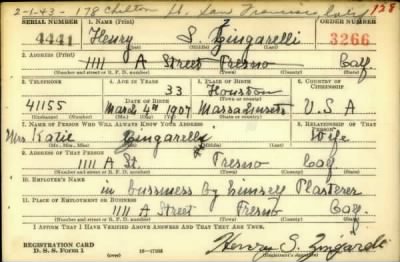 2-1-43 - 178 Chilton St. San Francisco Calif 128
SERIAL NUMBER 1. NAME (Print) ORDER NUMBER
4441 Henry S. Zingarelli 3266
(First) (Middle) (Last)
2. ADDRESS (Print)
1111 A Street Fresno Calf
(Number and street or R. F. D. number) (Town) (County) (State)
3. TELEPHONE 4. AGE IN YEARS 5. PLACE OF BIRTH 6. COUNTRY OF CITIZENSHIP
33 Houston
41155 DATE OF BIRTH (Town or county)
March 4th 1907 Massachusets U.S.A
(Exchange) (Number) (Mo.) (Day) (Yr.) (State or country)
7. NAME OF PERSON WHO WILL ALWAYS KNOW YOUR ADDRESS 8. RELATIONSHIP OF THAT PERSON
Mrs Katie Zingarelli Wife
(Mr., Mrs., Miss) (First) (Middle) (Last)
9. ADDRESS OF THAT PERSON
1111 A St. Fresno Calf
(Number and street or R. F. D. number) (Town) (County) (State)
10. EMPLOYER'S NAME
in bussiness by himself Plasterer
11. PLACE OF EMPLOYMENT OR BUSINESS
1111 A Street Fresno Calf.
(Number and street or R. F. D. number) (Town) (County) (State)
I AFFIRM THAT I HAVE VERIFIED ABOVE ANSWERS AND THAT THEY ARE TRUE.
REGISTRATION CARD
D. S. S. FORM 1 16-17105 Henry S. Zingarelli
(Registrant's signature)